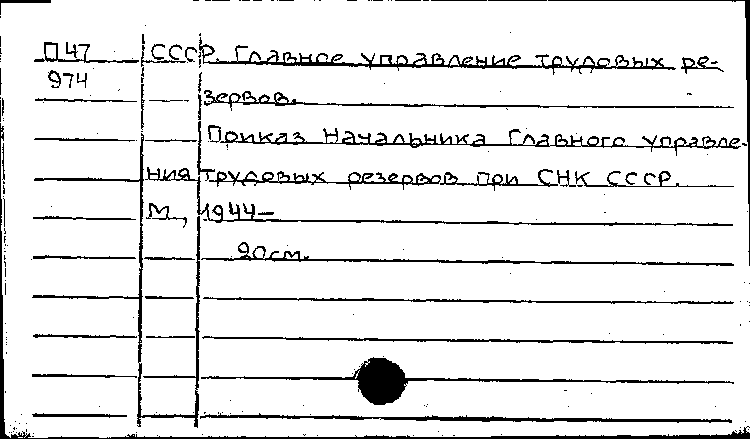 П47 СССР. Главное управление трудовых ре-
974 зервов.
Приказ Начальника Главного управле-
ния трудовых резервов при СНК СССР.
М., 1944—
20см.